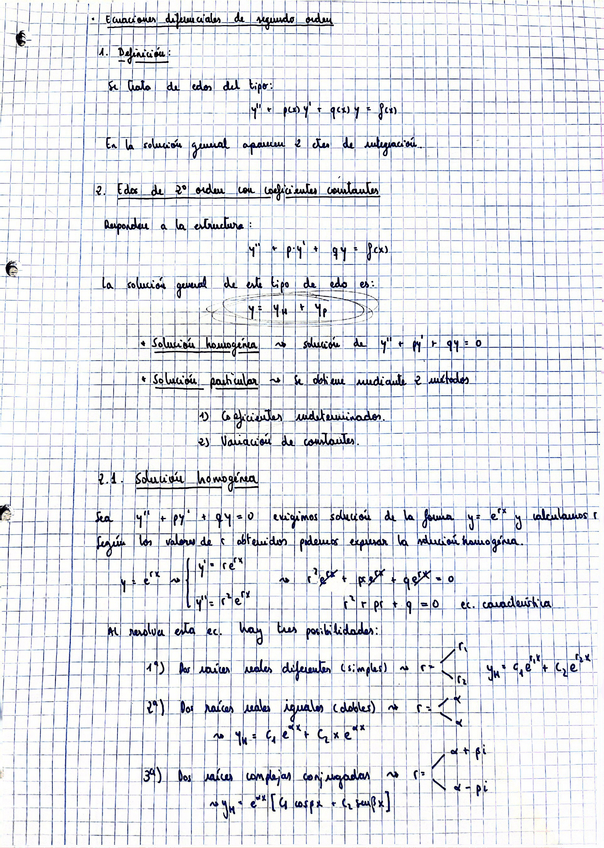 · Ecuaciones diferenciales de segundo orden
1. Definición:
Se trata de edos del tipo:
y'' + p(x) y' + q(x) y = f(x)
En la solución general aparecen 2 ctes de integración.
2. Edos de 2º orden con coeficientes constantes
Responden a la estructura:
y'' + p·y' + qy = f(x)
La solución general de este tipo de edo es:
y = y_H + y_p
* Solución homogénea ⇝ solución de y'' + py' + qy = 0
* Solución particular ⇝ Se obtiene mediante 2 métodos
1) Coeficientes indeterminados.
2) Variación de constantes.
2.1. Solución homogénea
Sea y'' + py' + qy = 0 exigimos solución de la forma y = e^{rx} y calculamos r
Según los valores de r obtenidos podemos expresar la solución homogénea.
y = e^{rx} ⇝ { y' = r e^{rx} ⇝ r² e^{rx} + p r e^{rx} + q e^{rx} = 0
y'' = r² e^{rx} r² + pr + q = 0 ec. característica
Al resolver esta ec. hay tres posibilidades:
1ª) Dos raíces reales diferentes (simples) ⇝ r = < r₁ r₂ y_H = C₁ e^{r₁x} + C₂ e^{r₂x}
2ª) Dos raíces reales iguales (dobles) ⇝ r = < α α
⇝ y_H = C₁ e^{αx} + C₂ x e^{αx}
3ª) Dos raíces complejas conjugadas ⇝ r = < α + βi α - βi
⇝ y_H = e^{αx} [C₁ cosβx + C₂ senβx]